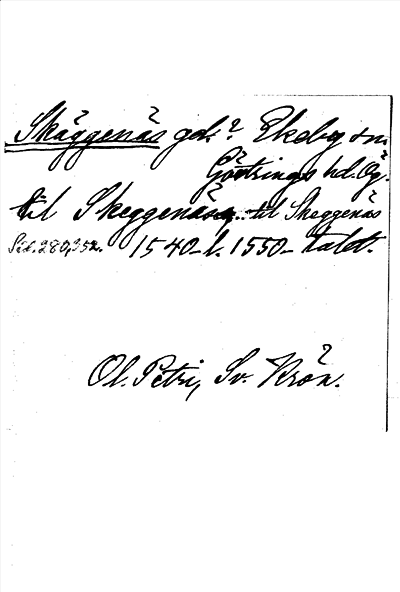 Skäggenäs gd.? Ekeby sn
Göstrings hd. Ög.
til Skeggenäs, til Skeggenäs
Sid. 280, 352. 1540- l. 1550-talet.
Ol. Petri, Sv. Krön.